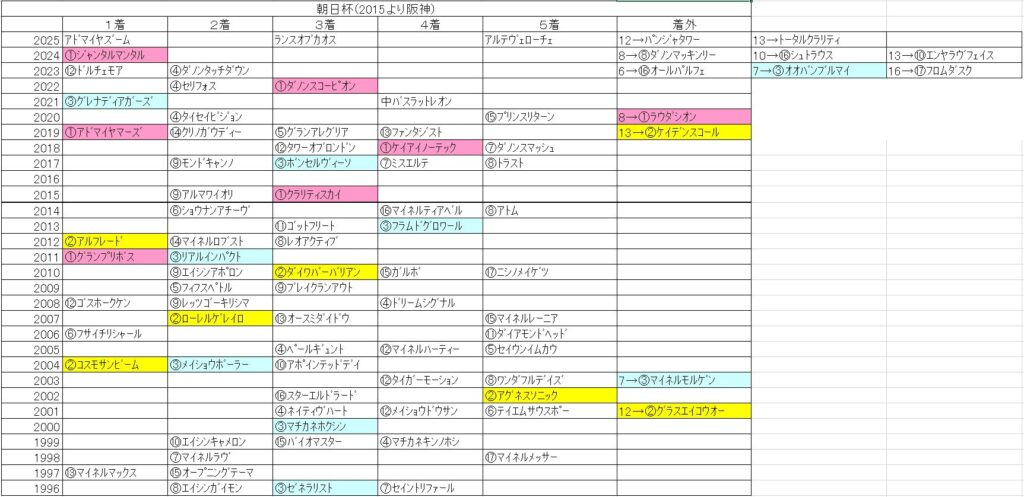 朝日杯(2015より阪神)
１着 ２着 ３着 ４着 ５着 着外
2025 ｱﾄﾞﾏｲﾔｽﾞｰﾑ ﾗﾝｽｵﾌﾞｶｵｽ ｱﾙﾃｳﾞｪﾛｰﾁｪ 12→ﾊﾟﾝｼﾞｬﾀﾜｰ 13→ﾄｰﾀﾙｸﾗﾘﾃｨ
2024 ①ｼﾞｬﾝﾀﾙﾏﾝﾀﾙ 8→⑧ﾀﾞﾉﾝﾏｯｷﾝﾘｰ 10→⑯ｼｭﾄﾗｳｽ 13→⑩ｴﾝﾔﾗｳﾞﾌｪｲｽ
2023 ⑫ﾄﾞﾙﾁｪﾓｱ ④ﾀﾞﾉﾝﾀｯﾁﾀﾞｳﾝ 6→⑯ｵｰﾙﾊﾟﾙﾌｪ 7→③ｵｵﾊﾞﾝﾌﾞﾙﾏｲ 16→⑰ﾌﾛﾑﾀﾞｽｸ
2022 ④ｾﾘﾌｫｽ ①ﾀﾞﾉﾝｽｺｰﾋﾟｵﾝ
2021 ③ｸﾞﾚﾅﾃﾞｨｱｶﾞｰｽﾞ 中ﾊﾞｽﾗｯﾄﾚｵﾝ
2020 ④ﾀｲｾｲﾋﾞｼﾞｮﾝ ⑮ﾌﾟﾘﾝｽﾘﾀｰﾝ 8→①ﾗｳﾀﾞｼｵﾝ
2019 ①ｱﾄﾞﾏｲﾔﾏｰｽﾞ ⑭ｸﾘﾉｶﾞｳﾃﾞｨｰ ⑤ｸﾞﾗﾝｱﾚｸﾞﾘｱ ⑬ﾌｧﾝﾀｼﾞｽﾄ 13→②ｹｲﾃﾞﾝｽｺｰﾙ
2018 ⑫ﾀﾜｰｵﾌﾞﾛﾝﾄﾞﾝ ①ｹｲｱｲﾉｰﾃｯｸ ⑦ﾀﾞﾉﾝｽﾏｯｼｭ
2017 ⑨ﾓﾝﾄﾞｷｬﾝﾉ ③ﾎﾞﾝｾﾙｳﾞｨｰｿ ⑦ﾐｽｴﾙﾃ ⑧ﾄﾗｽﾄ
2016
2015 ⑨ｱﾙﾏﾜｲｵﾘ ①ｸﾗﾘﾃｨｽｶｲ
2014 ⑥ｼｮｳﾅﾝｱﾁｰｳﾞ ⑯ﾏｲﾈﾙﾃｨｱﾍﾞﾙ ⑧ｱﾄﾑ
2013 ⑪ｺﾞｯﾄﾌﾘｰﾄ ③ﾌﾗﾑﾄﾞｸﾞﾛﾜｰﾙ
2012 ②ｱﾙﾌﾚｰﾄﾞ ⑭ﾏｲﾈﾙﾛﾌﾞｽﾄ ⑧ﾚｵｱｸﾃｨﾌﾞ
2011 ①ｸﾞﾗﾝﾌﾟﾘﾎﾞｽ ③ﾘｱﾙｲﾝﾊﾟｸﾄ
2010 ⑨ｴｲｼﾝｱﾎﾟﾛﾝ ②ﾀﾞｲﾜﾊﾞｰﾊﾞﾘｱﾝ ⑮ｶﾞﾙﾎﾞ ⑰ﾆｼﾉﾒｲｹﾞﾂ
2009 ⑤ﾌｨﾌｽﾍﾟﾄﾙ ⑨ﾌﾞﾚｲｸﾗﾝｱｳﾄ
2008 ⑫ｺﾞｽﾎｰｸｹﾝ ⑨ﾚｯﾂｺﾞｰｷﾘｼﾏ ④ﾄﾞﾘｰﾑｼｸﾞﾅﾙ
2007 ②ﾛｰﾚﾙｹﾞﾚｲﾛ ⑬ｵｰｽﾐﾀﾞｲﾄﾞｳ ⑮ﾏｲﾈﾙﾚｰﾆｱ
2006 ⑥ﾌｻｲﾁﾘｼｬｰﾙ ⑪ﾀﾞｲｱﾓﾝﾄﾞﾍｯﾄﾞ
2005 ④ﾍﾟｰﾙｷﾞｭﾝﾄ ⑫ﾏｲﾈﾙﾊｰﾃｨｰ ⑤ｾｲｳﾝﾆﾑｶｳ
2004 ②ｺｽﾓｻﾝﾋﾞｰﾑ ③ﾒｲｼｮｳﾎﾞｰﾗｰ ⑩ｱﾎﾟｲﾝﾃｯﾄﾞﾃﾞｲ
2003 ⑫ﾀｲｶﾞｰﾓｰｼｮﾝ ⑧ﾜﾝﾀﾞﾌﾙﾃﾞｲｽﾞ 7→③ﾏｲﾈﾙﾓﾙｹﾞﾝ
2002 ⑯ｽﾀｰｴﾙﾄﾞﾗｰﾄﾞ ②ｱｸﾞﾈｽｿﾆｯｸ
2001 ④ﾈｲﾃｨｳﾞﾊｰﾄ ⑫ﾒｲｼｮｳﾄﾞｳｻﾝ ⑥ﾃｲｴﾑｻｳｽﾎﾟｰ 12→②ｸﾞﾗｽｴｲｺｳｵｰ
2000 ③ﾏﾁｶﾈﾎｸｼﾝ
1999 ⑩ｴｲｼﾝｷｬﾒﾛﾝ ⑮ﾊﾞｲｵﾏｽﾀｰ ④ﾏﾁｶﾈｷﾝﾉﾎｼ
1998 ⑦ﾏｲﾈﾙﾗｳﾞ ⑰ﾏｲﾈﾙﾒｯｻｰ
1997 ⑬ﾏｲﾈﾙﾏｯｸｽ ⑮ｵｰﾌﾟﾆﾝｸﾞﾃｰﾏ
1996 ⑧ｴｲｼﾝｶﾞｲﾓﾝ ③ｾﾞﾈﾗﾘｽﾄ ⑦ｾｲﾝﾄﾘﾌｧｰﾙ